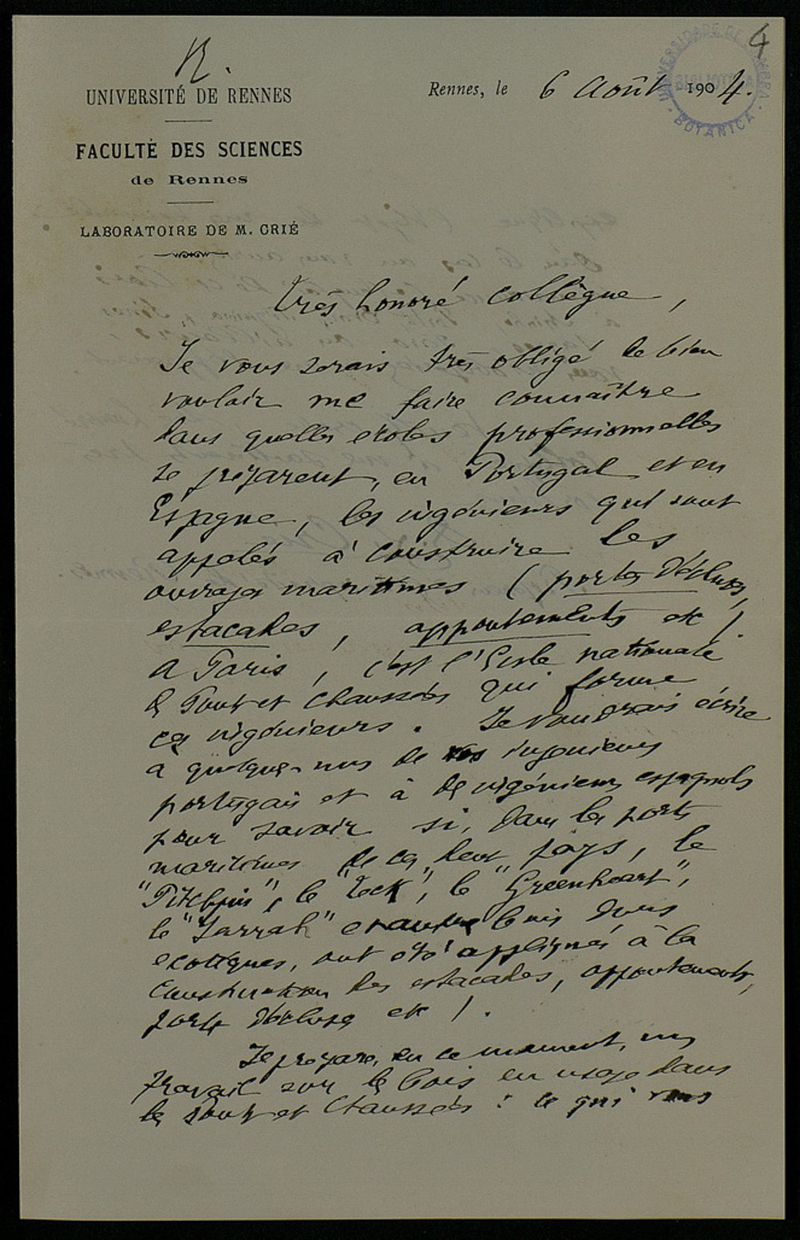 R.
4
UNIVERSITÉ DE RENNES
Rennes, le 6 Août 1904.
BOTANICA
FACULTÉ DES SCIENCES
de Rennes
LABORATOIRE DE M. CRIÉ
très honoré collègue,
Je vous serais très obligé de bien
vouloir me faire connaître
dans quelles écoles professionnelles
se préparent, en Portugal et en
Espagne, les ingénieurs qui sont
appelés à construire les
ouvrages maritimes (portes d'écluses,
estacades, appontements etc).
A Paris, c'est l'Ecole nationale
des Ponts et Chaussées qui forme
ces ingénieurs. Je voudrais écrire
à quelques uns de vos ingénieurs
portugais et à des ingénieurs espagnols
pour savoir si, dans les ports
maritimes de ces deux pays, le
"Pitchpin", le "Teck", le "Greenheart",
le "Jarrah" et autres bois durs
exotiques, ont été appliqués à la
construction des estacades, appontements,
portes d'écluses etc).
Je prépare, en ce moment, un
travail sur les bois en usage dans
les Ponts et Chaussées : ce qui vous